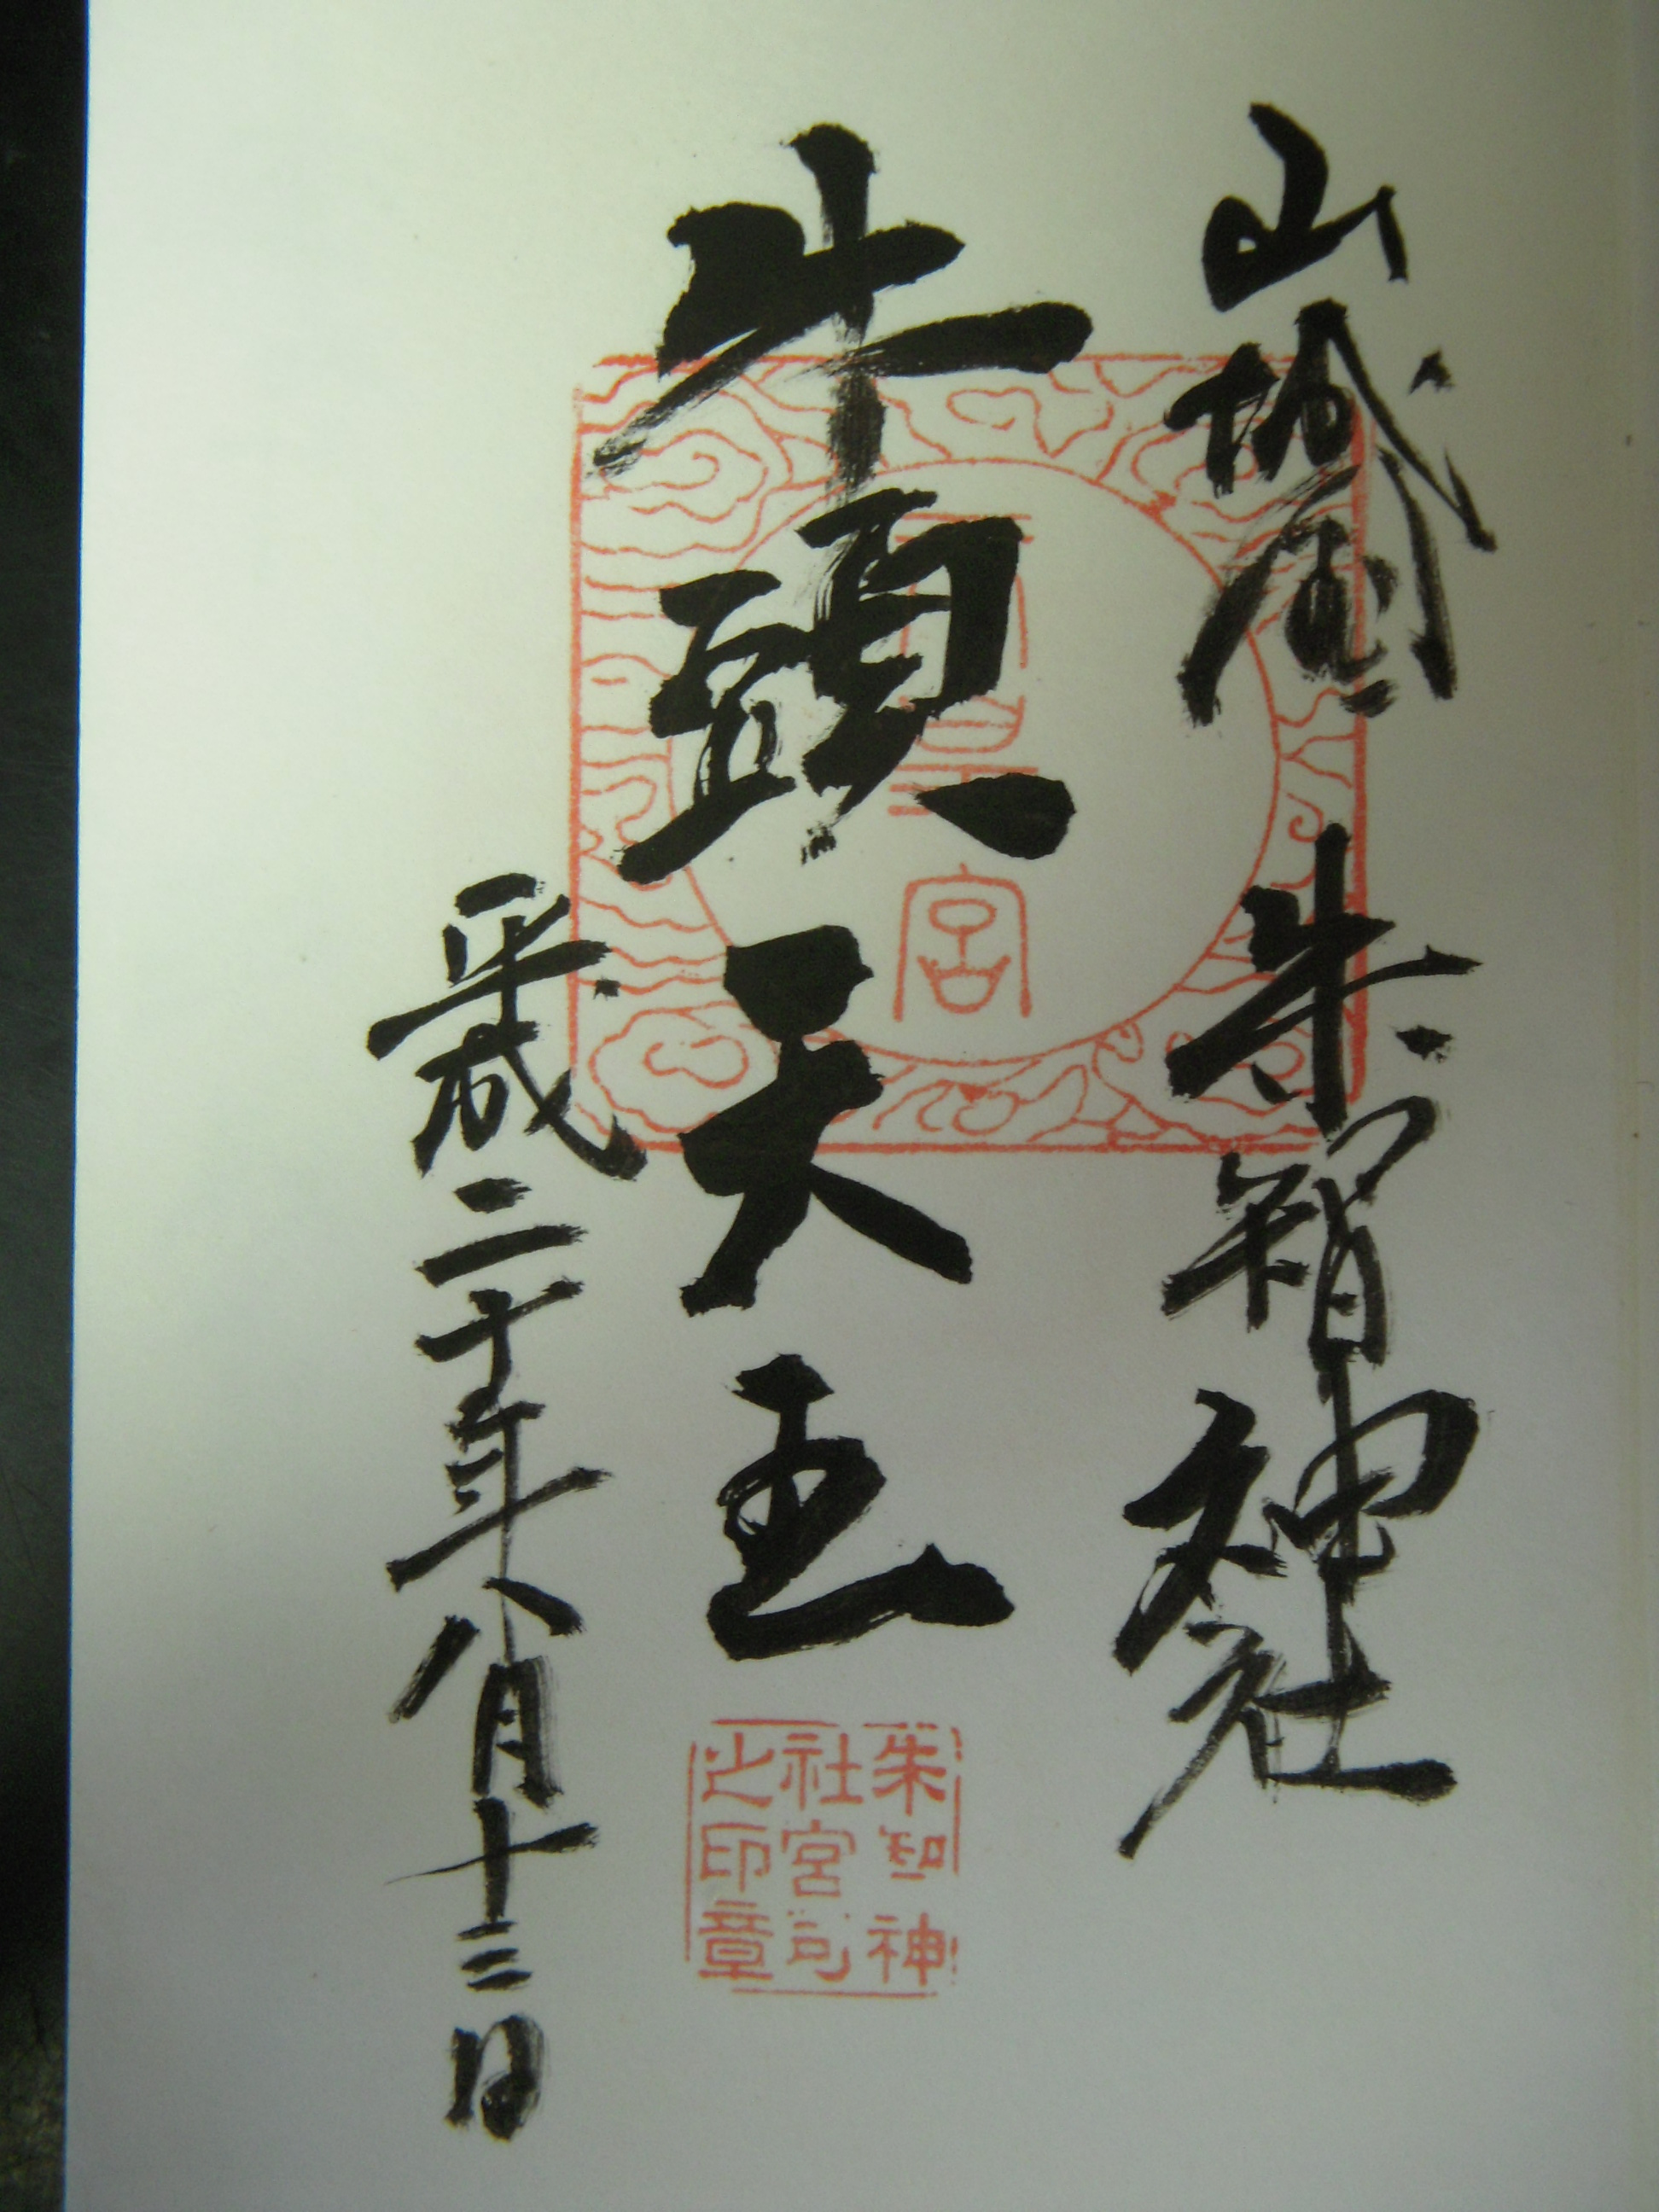 山城国 朱智神社
牛頭天王
平成二十年八月十三日
天王宮
朱知神
社宮司
之印章